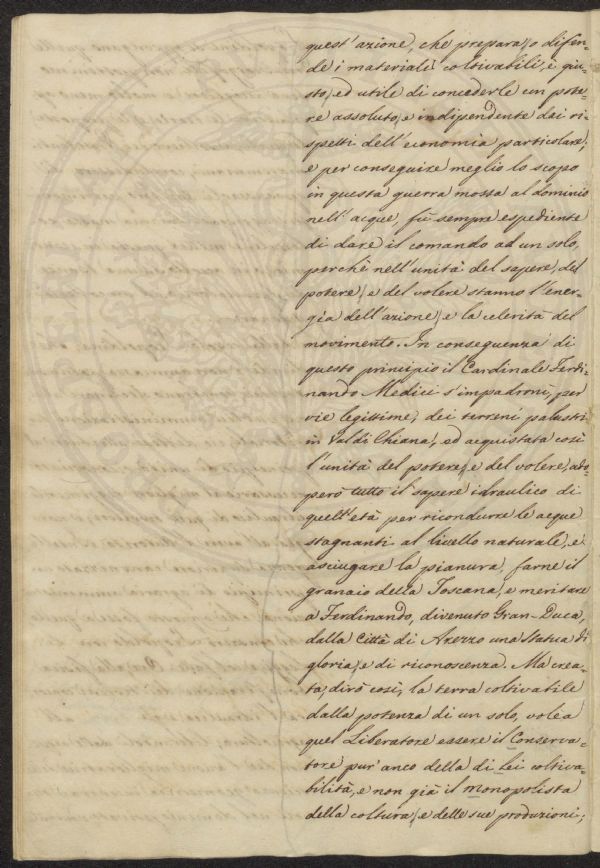 quest'azione, che prepara, o difen=
de i materiali coltivabili, è giu=
sto, ed utile di concederle un pote=
re assoluto, e indipendente dai ri=
spetti dell'economia particolare;
e per conseguire meglio lo scopo
in questa guerra mossa al dominio
nell'acque, fù sempre espediente
di dare il comando ad un solo,
perchè nell'unità del sapere, del
potere, e del volere stanno l'ener=
gia dell'azione, e la celerità del
movimento. In conseguenza di
questo principio il Cardinale Ferdi=
nando Medici s'impadronì, per
vie legittime, dei terreni palustri
in Val di Chiana, ed acquistata così
l'unità del potere, e del volere, ado=
però tutto il sapere idraulico di
quell'età per ricondurre le acque
stagnanti al livello naturale, e
asciugare la pianura, farne il
granaio della Toscana, e meritare
a Ferdinando, divenuto Gran-Duca,
dalla Città di Arezzo una Statua di
gloria, e di riconoscenza. Ma crea=
ta, dirò così, la terra coltivabile
dalla potenza di un solo, volea
quel Liberatore essere il Conserva=
tore pur'anco della di Lei coltiva=
bilità, e non già il monopolista
della coltura, e delle sue produzioni;